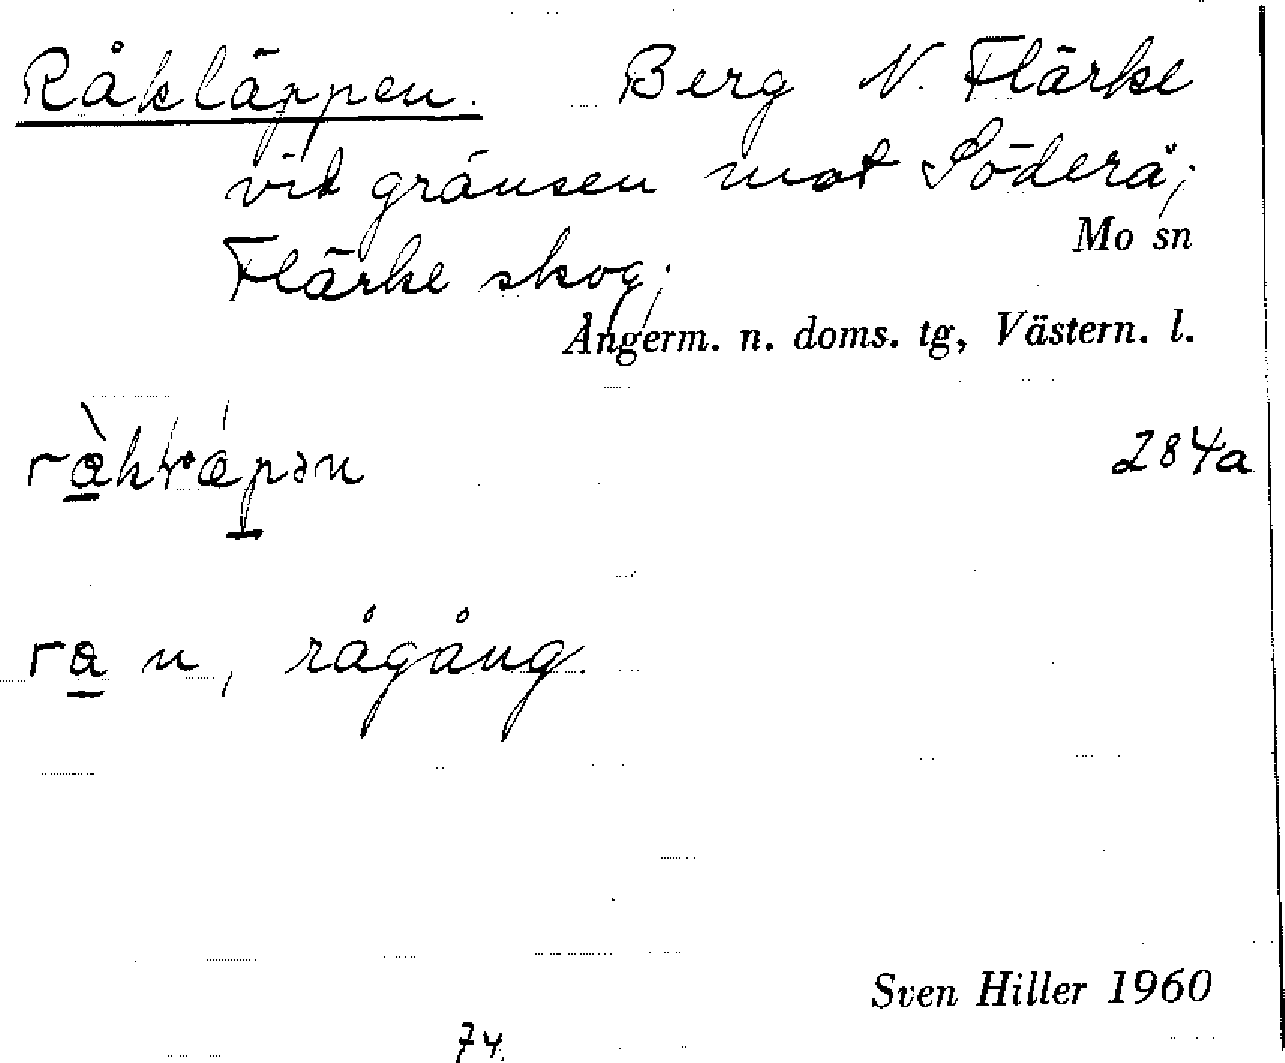 Råkläppen. Berg N. Flärke
vid gränsen mot Söderå;
Mo sn
Flärke skog;
Ångerm. n. doms. tg, Västern. l.
284a
n, rågång
Sven Hiller 1960
74.